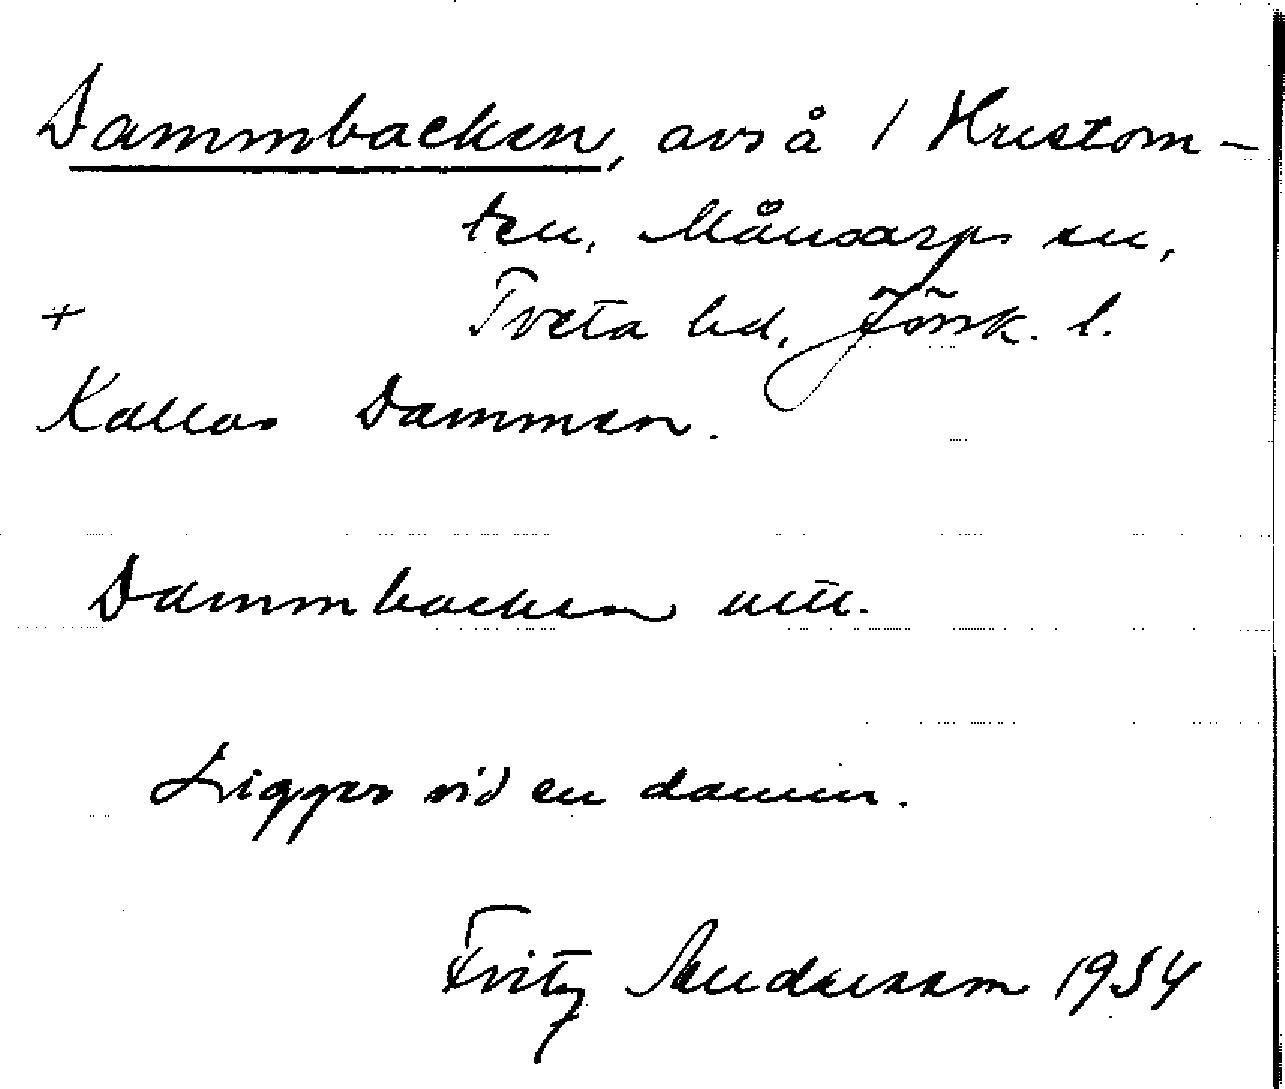 Dammbacken, avs å 1 Hustom-
ten, Månsarps sn,
+ Tveta hd, Jönk. l.
Kallas Dammen.
Dammbacken utt.
Ligger vid en damm.
Fritz Andersson 1934